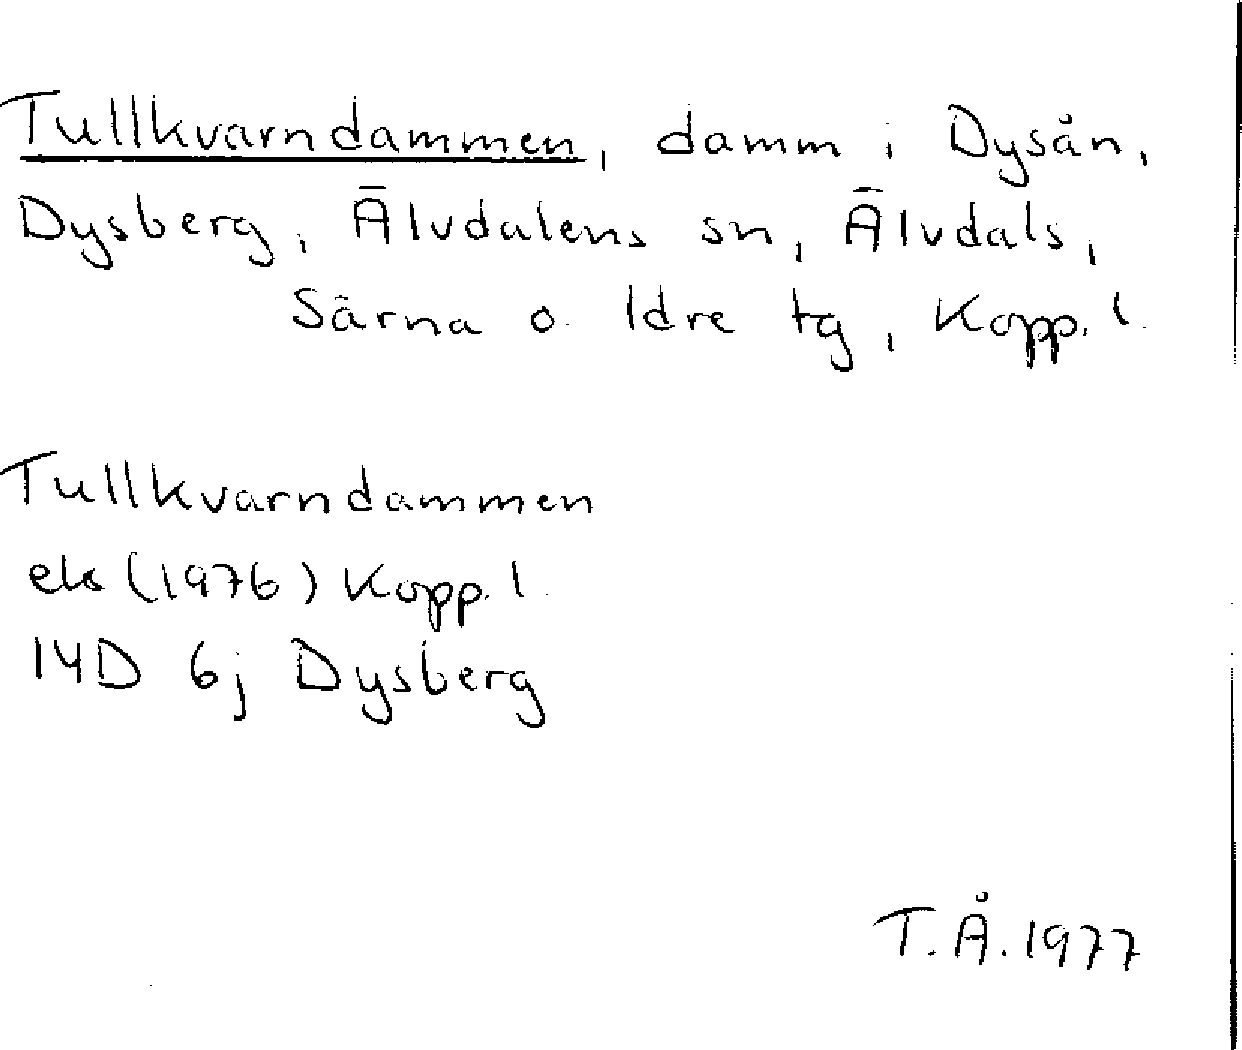 Tullkvarndammen, damm i Dysån,
Dysberg, Älvdalens sn, Älvdals,
Särna o. Idre tg, Kopp. l.
Tullkvarndammen
ek (1976) Kopp. l.
14D 6j Dysberg
T.Å. 1977